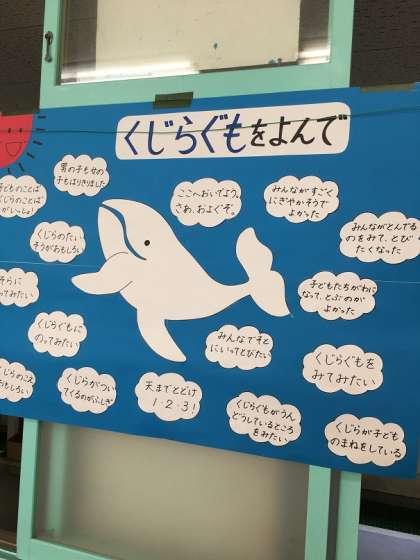 くじらぐもをよんで
男の子も女の
子もはりきりました
子どものことば
くじらのことば
がいっしょ!
ここへおいでよう。
さあ、およぐぞ。
みんながすごく
にぎやかそうで
よかった
みんながとんでる
のをみて、とび
たくなった
くじらのたい
そうがおもしろい
子どもたちがわに
なって、とぶのが
よかった
そらに
ってみたい
くじらぐもに
のってみたい
みんなでそと
にいってとびたい
くじらぐもを
みてみたい
じらのこえ
おもしろい
くじらがつい
てくるのがふしぎ
天までとどけ
1・2・3!
くじらぐもがうん
どうしているところ
をみたい
くじらが子ども
のまねをしている